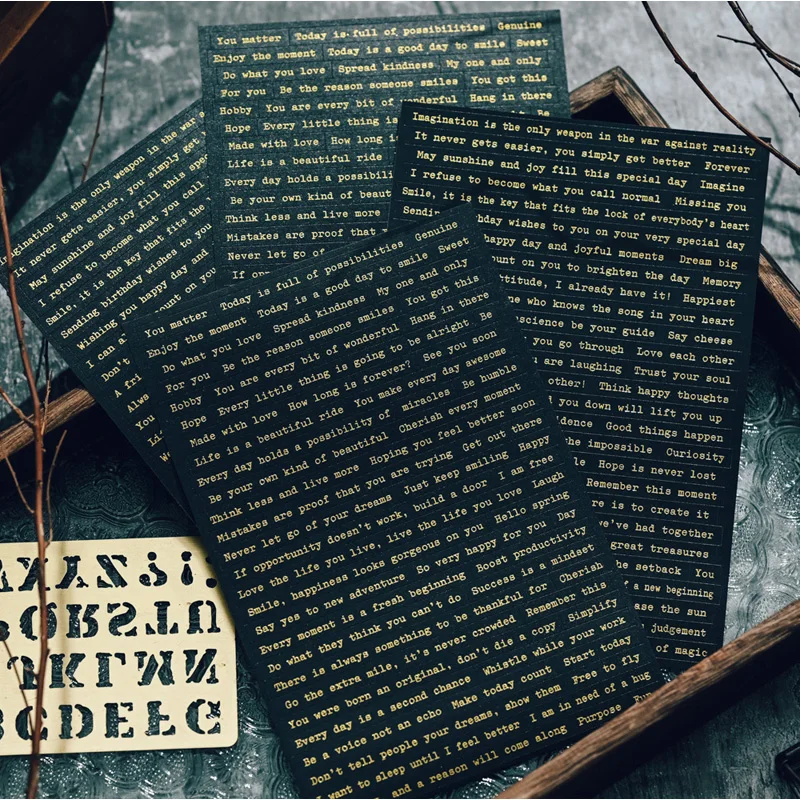 You matter Today is full of possibilities Genuine
Enjoy the moment Today is a good day to smile Sweet
Do what you love Spread kindness My one and only
For you Be the reason someone smiles You got this
Hobby You are every bit of wonderful Hang in there
Hope Every little thing is Be
Made with love How long is
Life is a beautiful ride
Every day holds a possibili
Be your own kind of beaut
Think less and live more
Mistakes are proof that
Never let go of
If opp
Imagination is the only weapon in the war against reality
It never gets easier, you simply get better Forever
May sunshine and joy fill this special day Imagine
I refuse to become what you call normal Missing you
Smile, it is the key that fits the lock of everybody's heart
Sendi thday wishes to you on your very special day
happy day and joyful moments Dream big
ount on you to brighten the day Memory
ttitude, I already have it! Happiest
ne who knows the song in your heart
science be your guide Say cheese
you go through Love each other
u are laughing Trust your soul
other! Think happy thoughts
d you down will lift you up
dence Good things happen
the impossible Curiosity
le Hope is never lost
Remember this moment
re is to create it
we've had together
great treasures
he setback You
f a new beginning
ase the sun
judgement
of magic
Imagination is the only weapon in the war a
It never gets easier, you simply get
May sunshine and joy fill this spec
I refuse to become what you call
Smile, it is the key that fits the
Sending birthday wishes to you
Wishing you happy day and
I can a ount on you
Don't
A fri
Alwa
You
Li
You matter Today is full of possibilities Genuine
Enjoy the moment Today is a good day to smile Sweet
Do what you love Spread kindness My one and only
For you Be the reason someone smiles You got this
Hobby You are every bit of wonderful Hang in there
Hope Every little thing is going to be alright Be
Made with love How long is forever? See you soon
Life is a beautiful ride You make every day awesome
Every day holds a possibility of miracles Be humble
Be your own kind of beautiful Cherish every moment
Think less and live more Hoping you feel better soon
Mistakes are proof that you are trying Get out there
Never let go of your dreams Just keep smiling Happy
If opportunity doesn't work, build a door I am free
Love the life you live, live the life you love Laugh
Smile, happiness looks gorgeous on you Hello spring
Say yes to new adventure So very happy for you Day
Every moment is a fresh beginning Boost productivity
Do what they think you can't do Success is a mindset
There is always something to be thankful for Cherish
Go the extra mile, it's never crowded Remember this
You were born an original, don't die a copy Simplify
Every day is a second chance Whistle while your work
Be a voice not an echo Make today count Start today
Don't tell people your dreams, show them Free to fly
I want to sleep until I feel better I am in need of a hug
and a reason will come along Purpose Fun